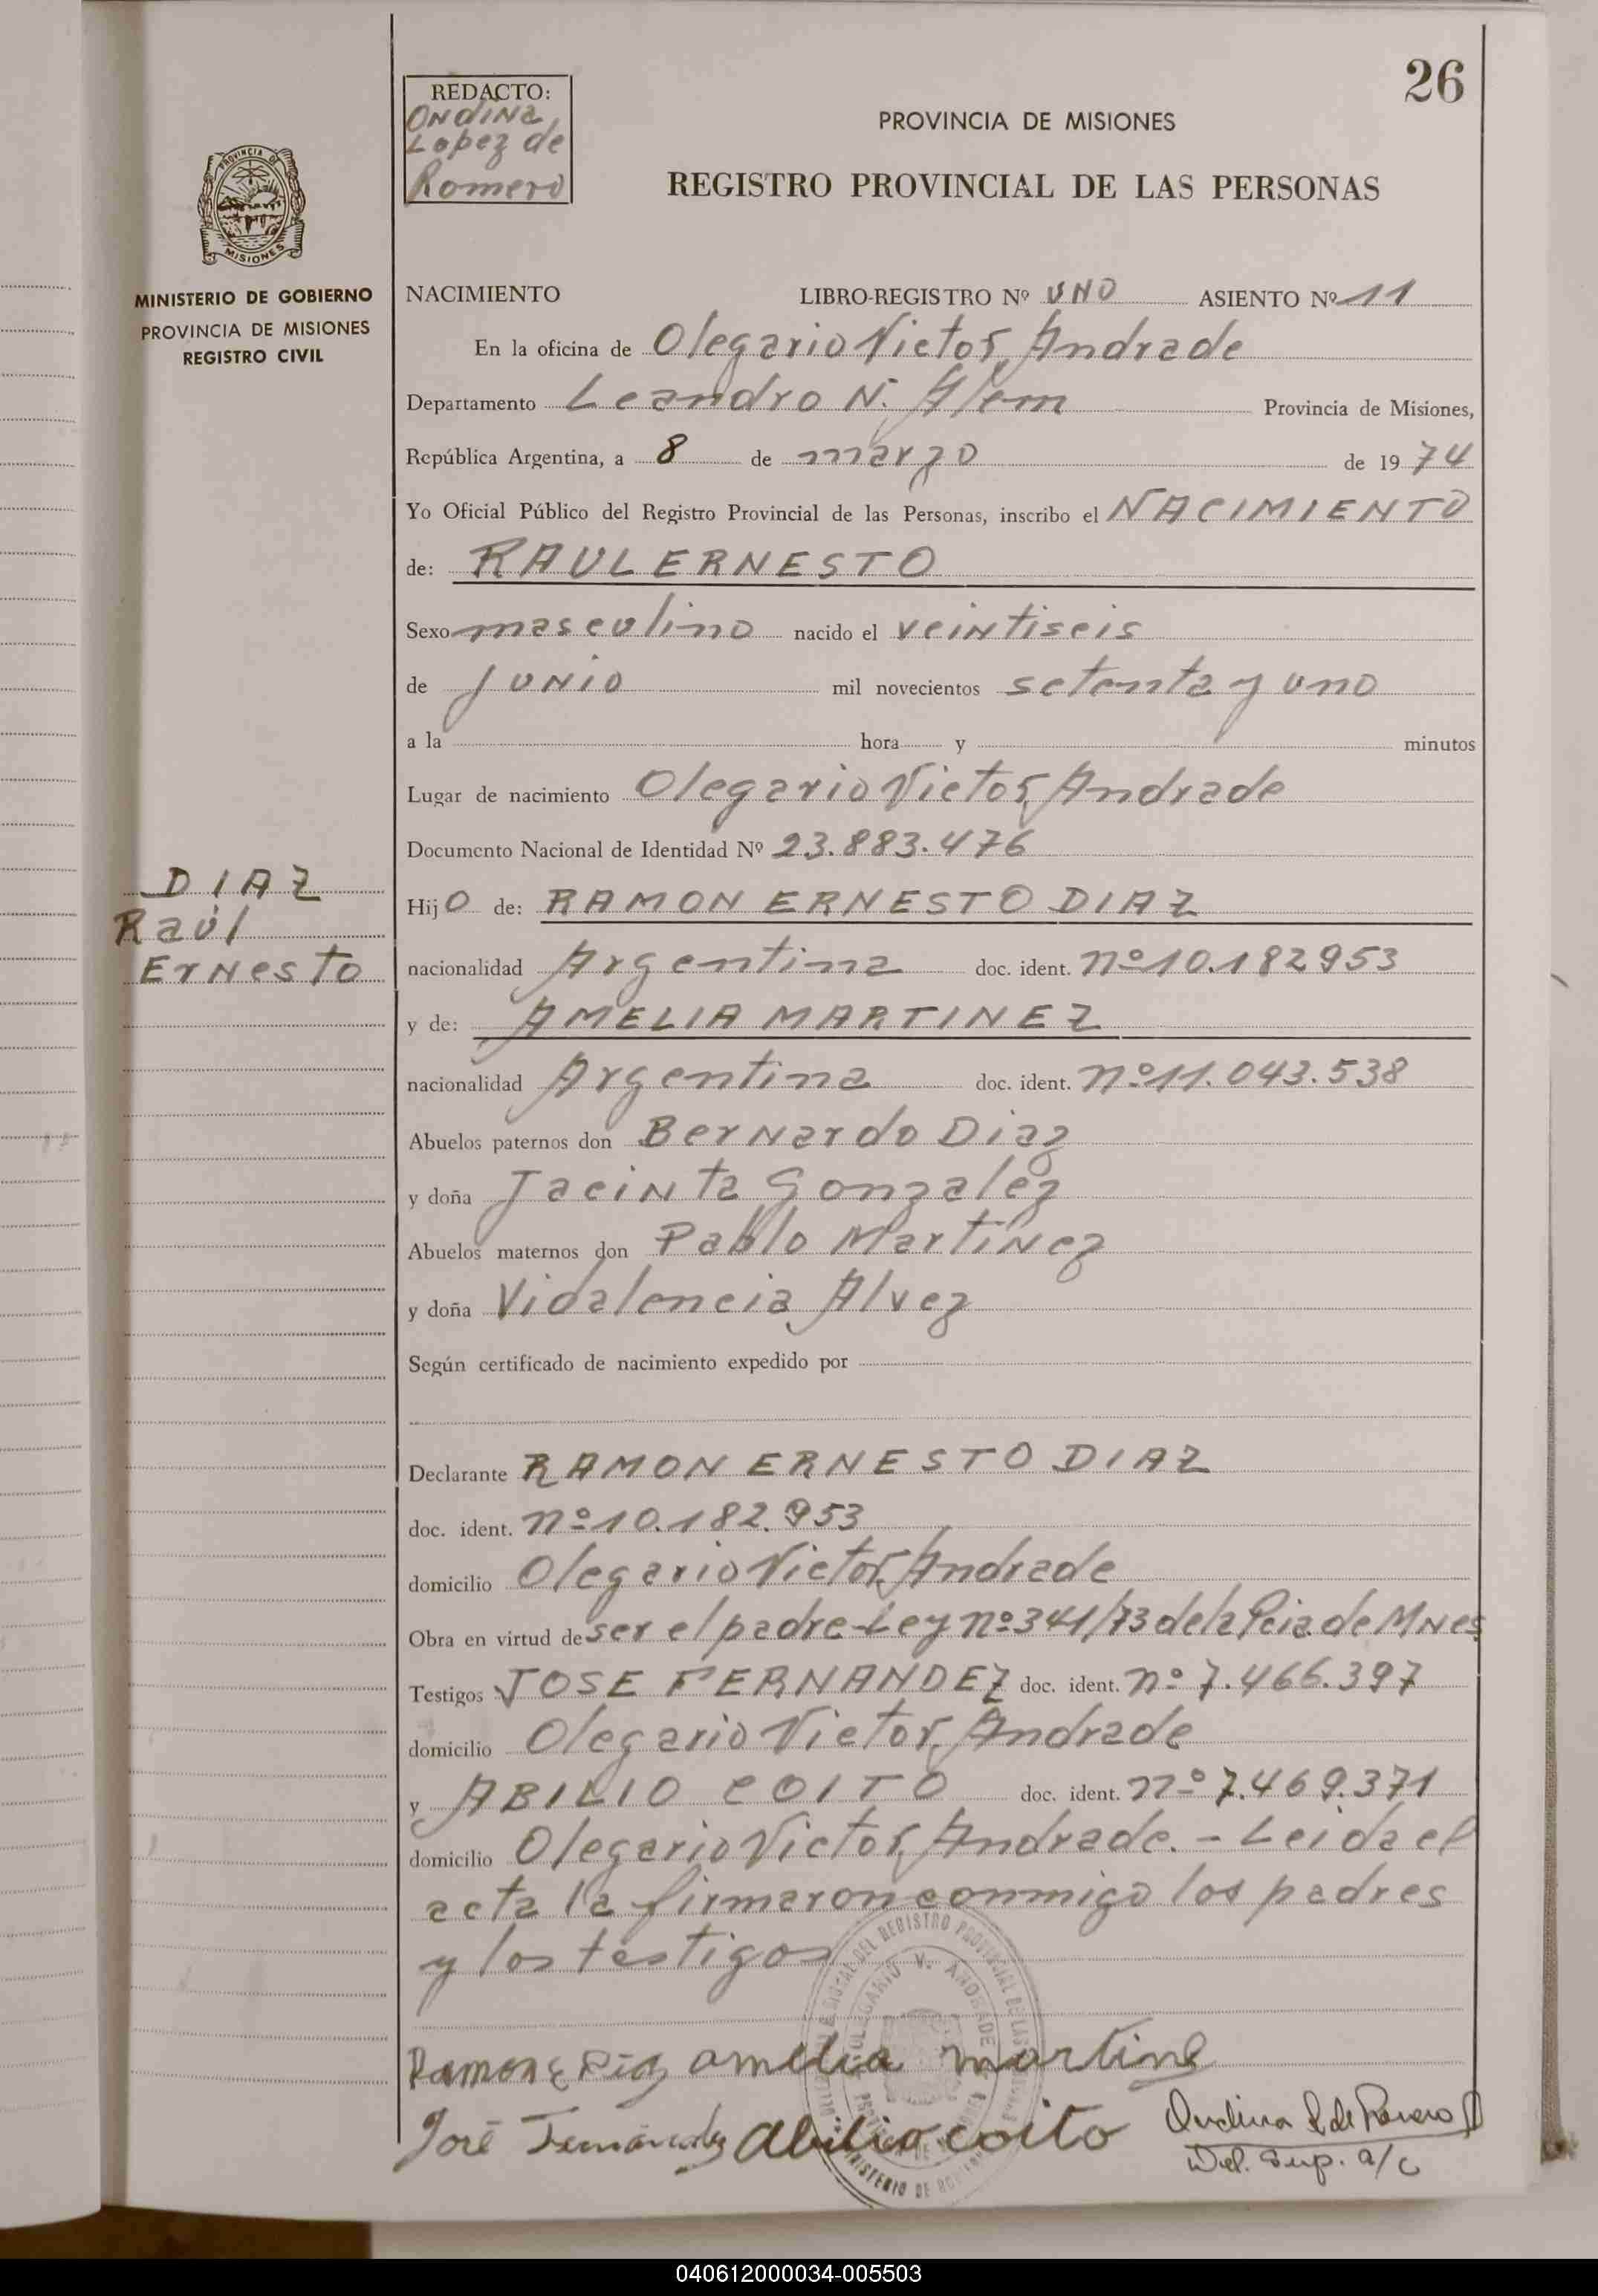 26
REDACTO:
Ondina
Lopez de
Romero
PROVINCIA DE MISIONES
REGISTRO PROVINCIAL DE LAS PERSONAS
PROVINCIA DE
MISIONES
MINISTERIO DE GOBIERNO
PROVINCIA DE MISIONES
REGISTRO CIVIL
NACIMIENTO LIBRO-REGISTRO Nº UNO ASIENTO Nº 11
En la oficina de Olegario Victor Andrade
Departamento Leandro N. Alem Provincia de Misiones,
República Argentina, a 8 de marzo de 1974
Yo Oficial Público del Registro Provincial de las Personas, inscribo el NACIMIENTO
de: RAUL ERNESTO
Sexo masculino nacido el veintiseis
de junio mil novecientos setenta y uno
a la hora y minutos
Lugar de nacimiento Olegario Victor Andrade
Documento Nacional de Identidad Nº 23.883.476
DIAZ
Raúl
Ernesto
Hijo de: RAMON ERNESTO DIAZ
nacionalidad Argentina doc. ident. nº 10.182953
y de: AMELIA MARTINEZ
nacionalidad Argentina doc. ident. nº 11.043.538
Abuelos paternos don Bernardo Diaz
y doña Jacinta Gonzalez
Abuelos maternos don Pablo Martinez
y doña Vidalencia Alvez
Según certificado de nacimiento expedido por
Declarante RAMON ERNESTO DIAZ
doc. ident. nº 10.182.953
domicilio Olegario Victor Andrade
Obra en virtud de ser el padre-Ley nº 341/73 de la Pcia. de Mnes
Testigos JOSE FERNANDEZ doc. ident. nº 7.466.397
domicilio Olegario Victor Andrade
y ABILIO COITO doc. ident. nº 7.469.371
domicilio Olegario Victor Andrade. - Leida el
acta la firmaron conmigo los padres
y los testigos
DEL REGISTRO PROVINCIAL DE LAS
OLEGARIO V. ANDRADE
MINISTERIO DE
Ramon E Diaz amelia martine
José Fernández Abilio coito Ondina L de Romero
Del. Sup. a/c
040612000034-005503